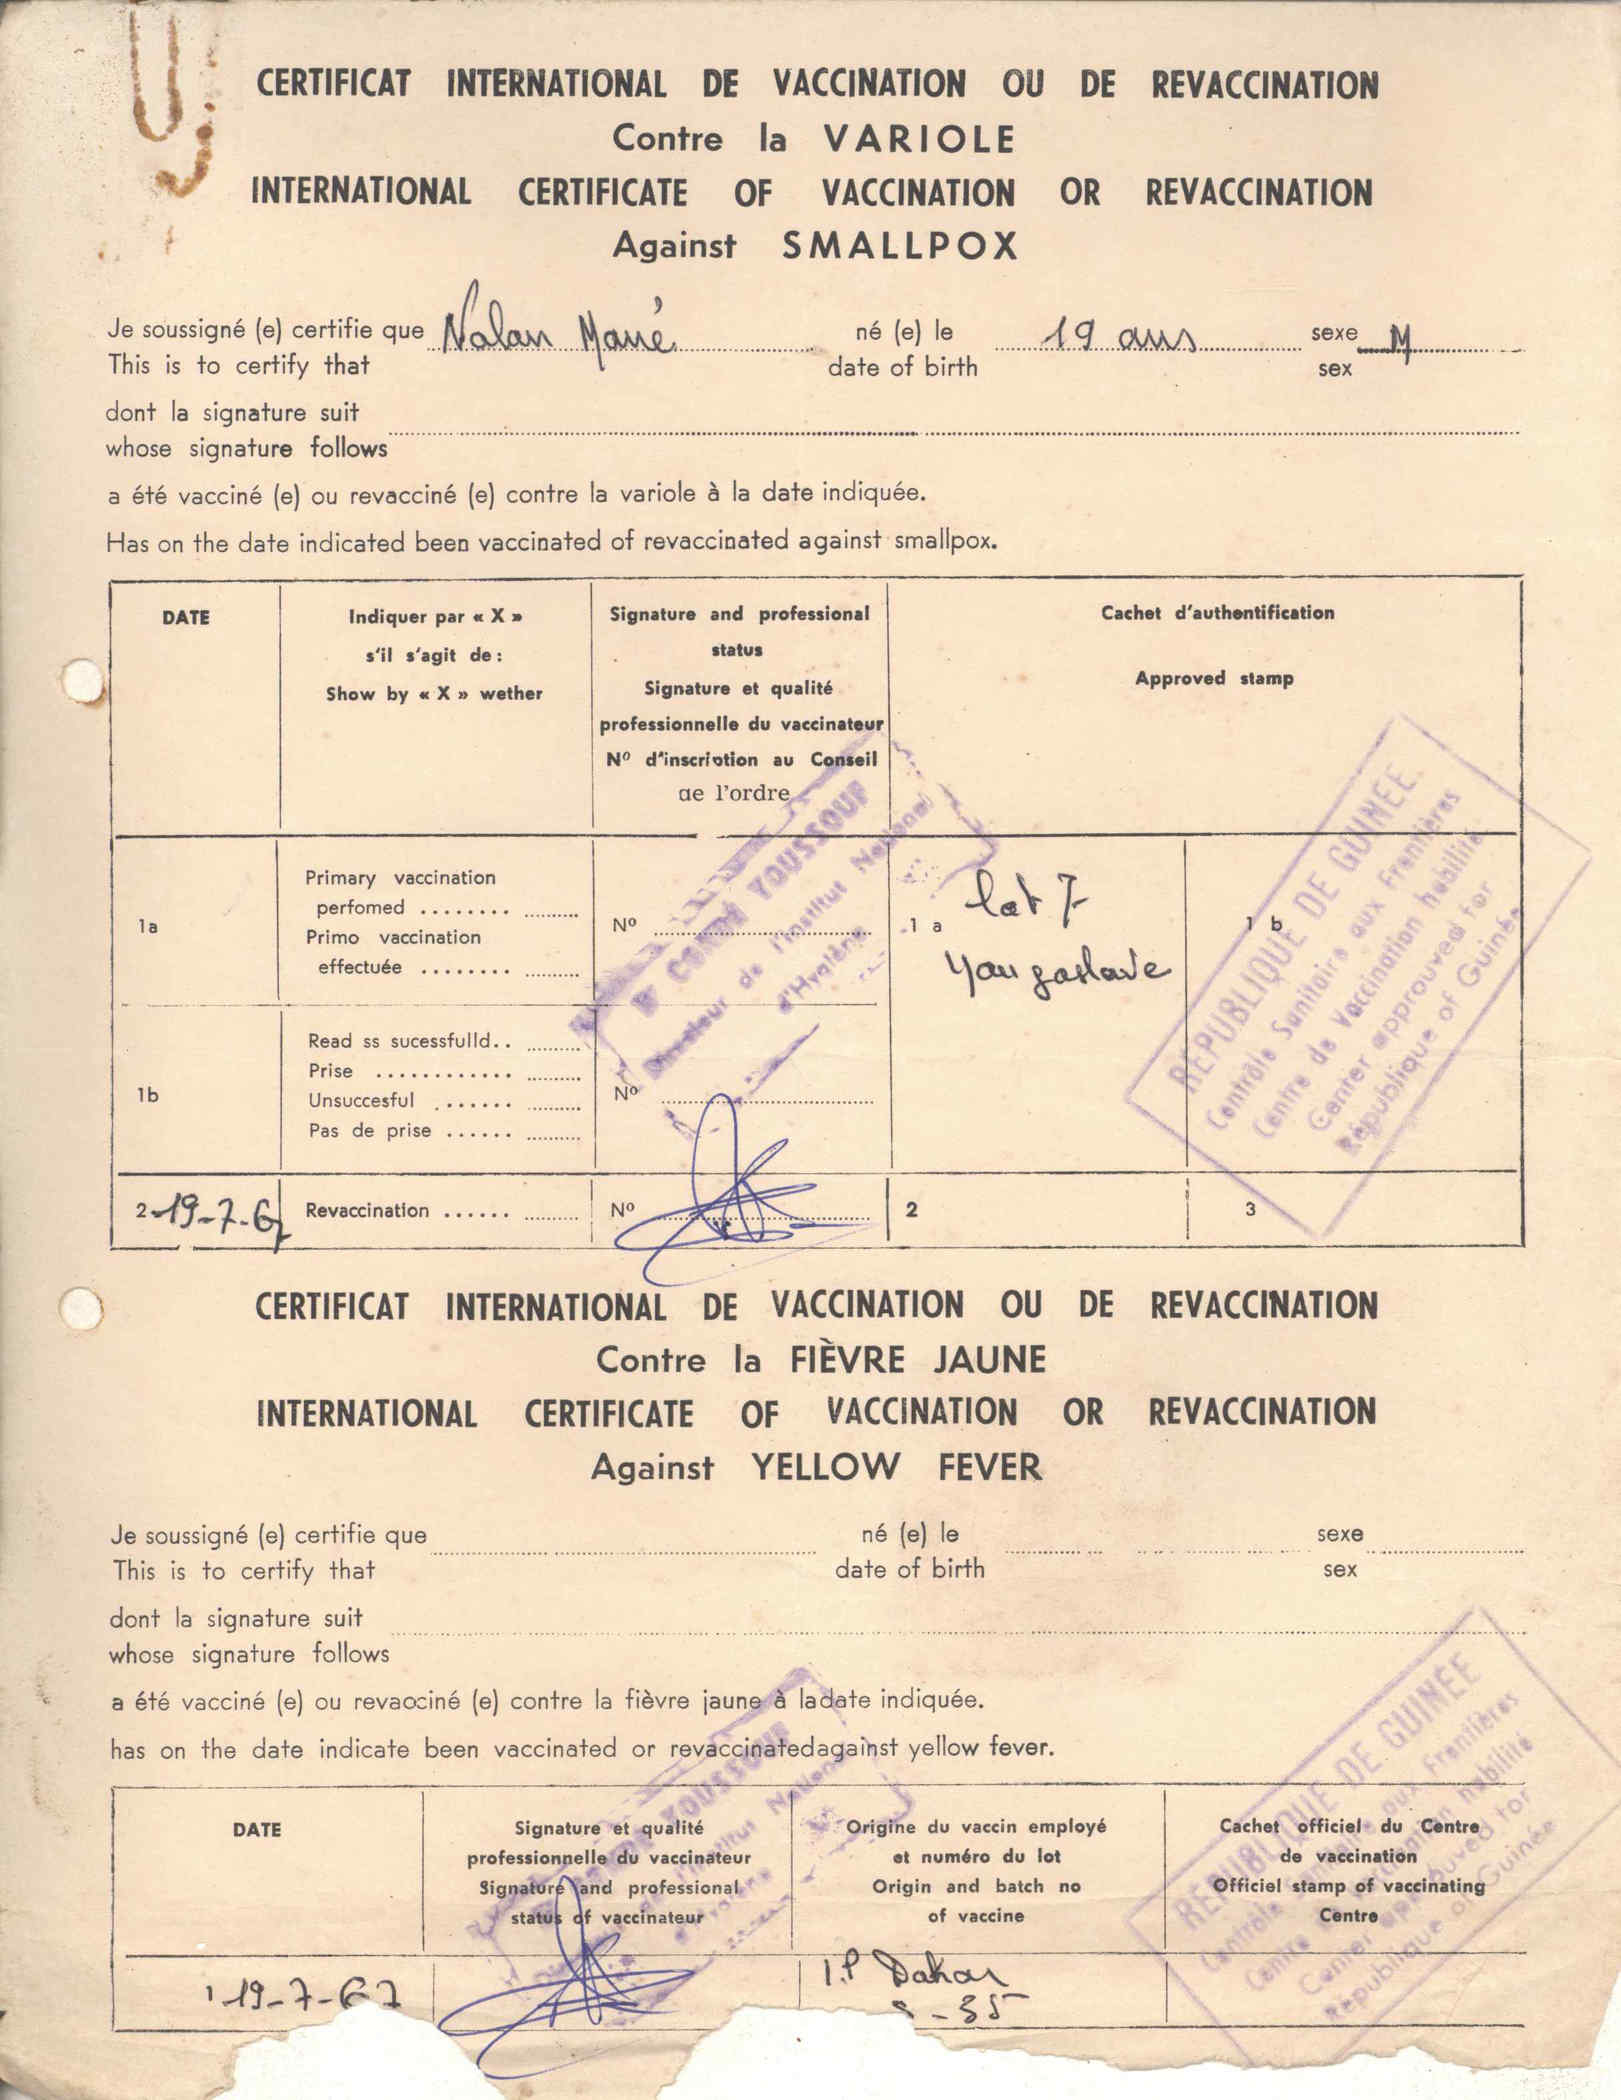 CERTIFICAT INTERNATIONAL DE VACCINATION OU DE REVACCINATION
Contre la VARIOLE
INTERNATIONAL CERTIFICATE OF VACCINATION OR REVACCINATION
Against SMALLPOX
Je soussigné (e) certifie que Nalan Mané né (e) le 19 ans sexe M
This is to certify that date of birth sex
dont la signature suit
whose signature follows
a été vacciné (e) ou revacciné (e) contre la variole à la date indiquée.
Has on the date indicated been vaccinated of revaccinated against smallpox.
DATE
Indiquer par « X »
s'il s'agit de :
Show by « X » wether
Signature and professional
status
Signature et qualité
professionnelle du vaccinateur
Nº d'inscription au Conseil
de l'ordre
Cachet d'authentification
Approved stamp
1a
Primary vaccination
perfomed ........
Primo vaccination
effectuée ........
Nº
1 a
lot 7
1 b
Dr CONDÉ YOUSSOUF
Directeur de l'Institut National
d'Hygiène
REPUBLIQUE DE GUINÉE
Contrôle Sanitaire aux Frontières
Centre de Vaccination habilité
Center approuved for
République of Guinée
1b
Read ss sucessfulld..
Prise ............
Unsuccesful .......
Pas de prise ......
Nº
2 19-7-67
Revaccination ......
Nº
2
3
CERTIFICAT INTERNATIONAL DE VACCINATION OU DE REVACCINATION
Contre la FIÈVRE JAUNE
INTERNATIONAL CERTIFICATE OF VACCINATION OR REVACCINATION
Against YELLOW FEVER
Je soussigné (e) certifie que né (e) le sexe
This is to certify that date of birth sex
dont la signature suit
whose signature follows
a été vacciné (e) ou revacciné (e) contre la fièvre jaune à ladate indiquée.
has on the date indicate been vaccinated or revaccinatedagainst yellow fever.
DATE
Signature et qualité
professionnelle du vaccinateur
Signature and professional
status of vaccinateur
Origine du vaccin employé
et numéro du lot
Origin and batch no
of vaccine
Cachet officiel du Centre
de vaccination
Officiel stamp of vaccinating
Centre
YOUSSOUF
Institut National
REPUBLIQUE DE GUINÉE
Contrôle Sanitaire aux Frontières
Centre de Vaccination habilité
Center approuved for
République of Guinée
1 19-7-67
I.P Dakar
- 35